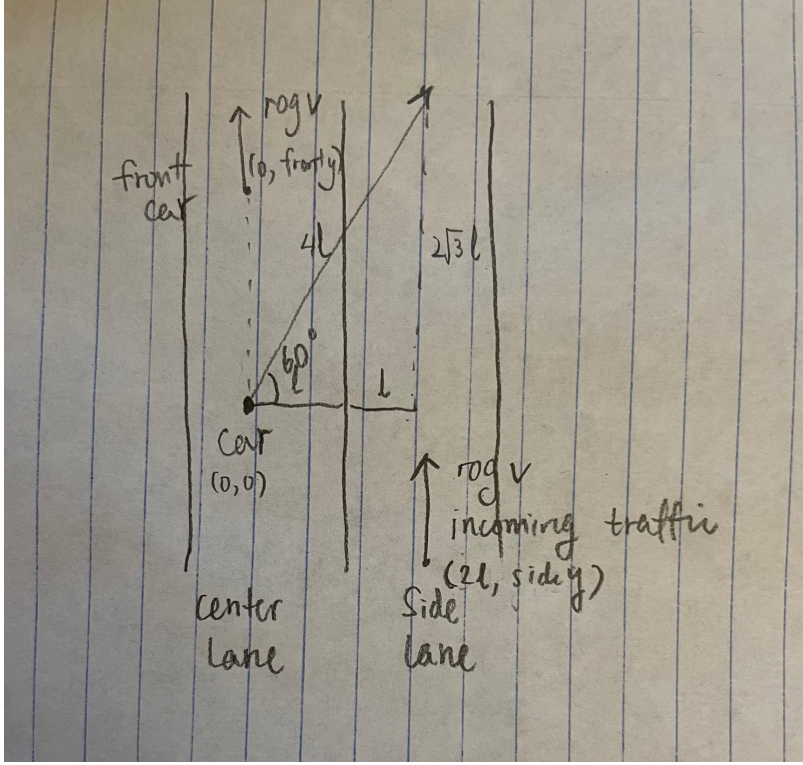 rog v
(0, frontly)
front
car
4l
2√3 l
60°
l
l
car
(0,0)
rog v
incoming traffic
(2l, sidey)
center
lane
Side
lane